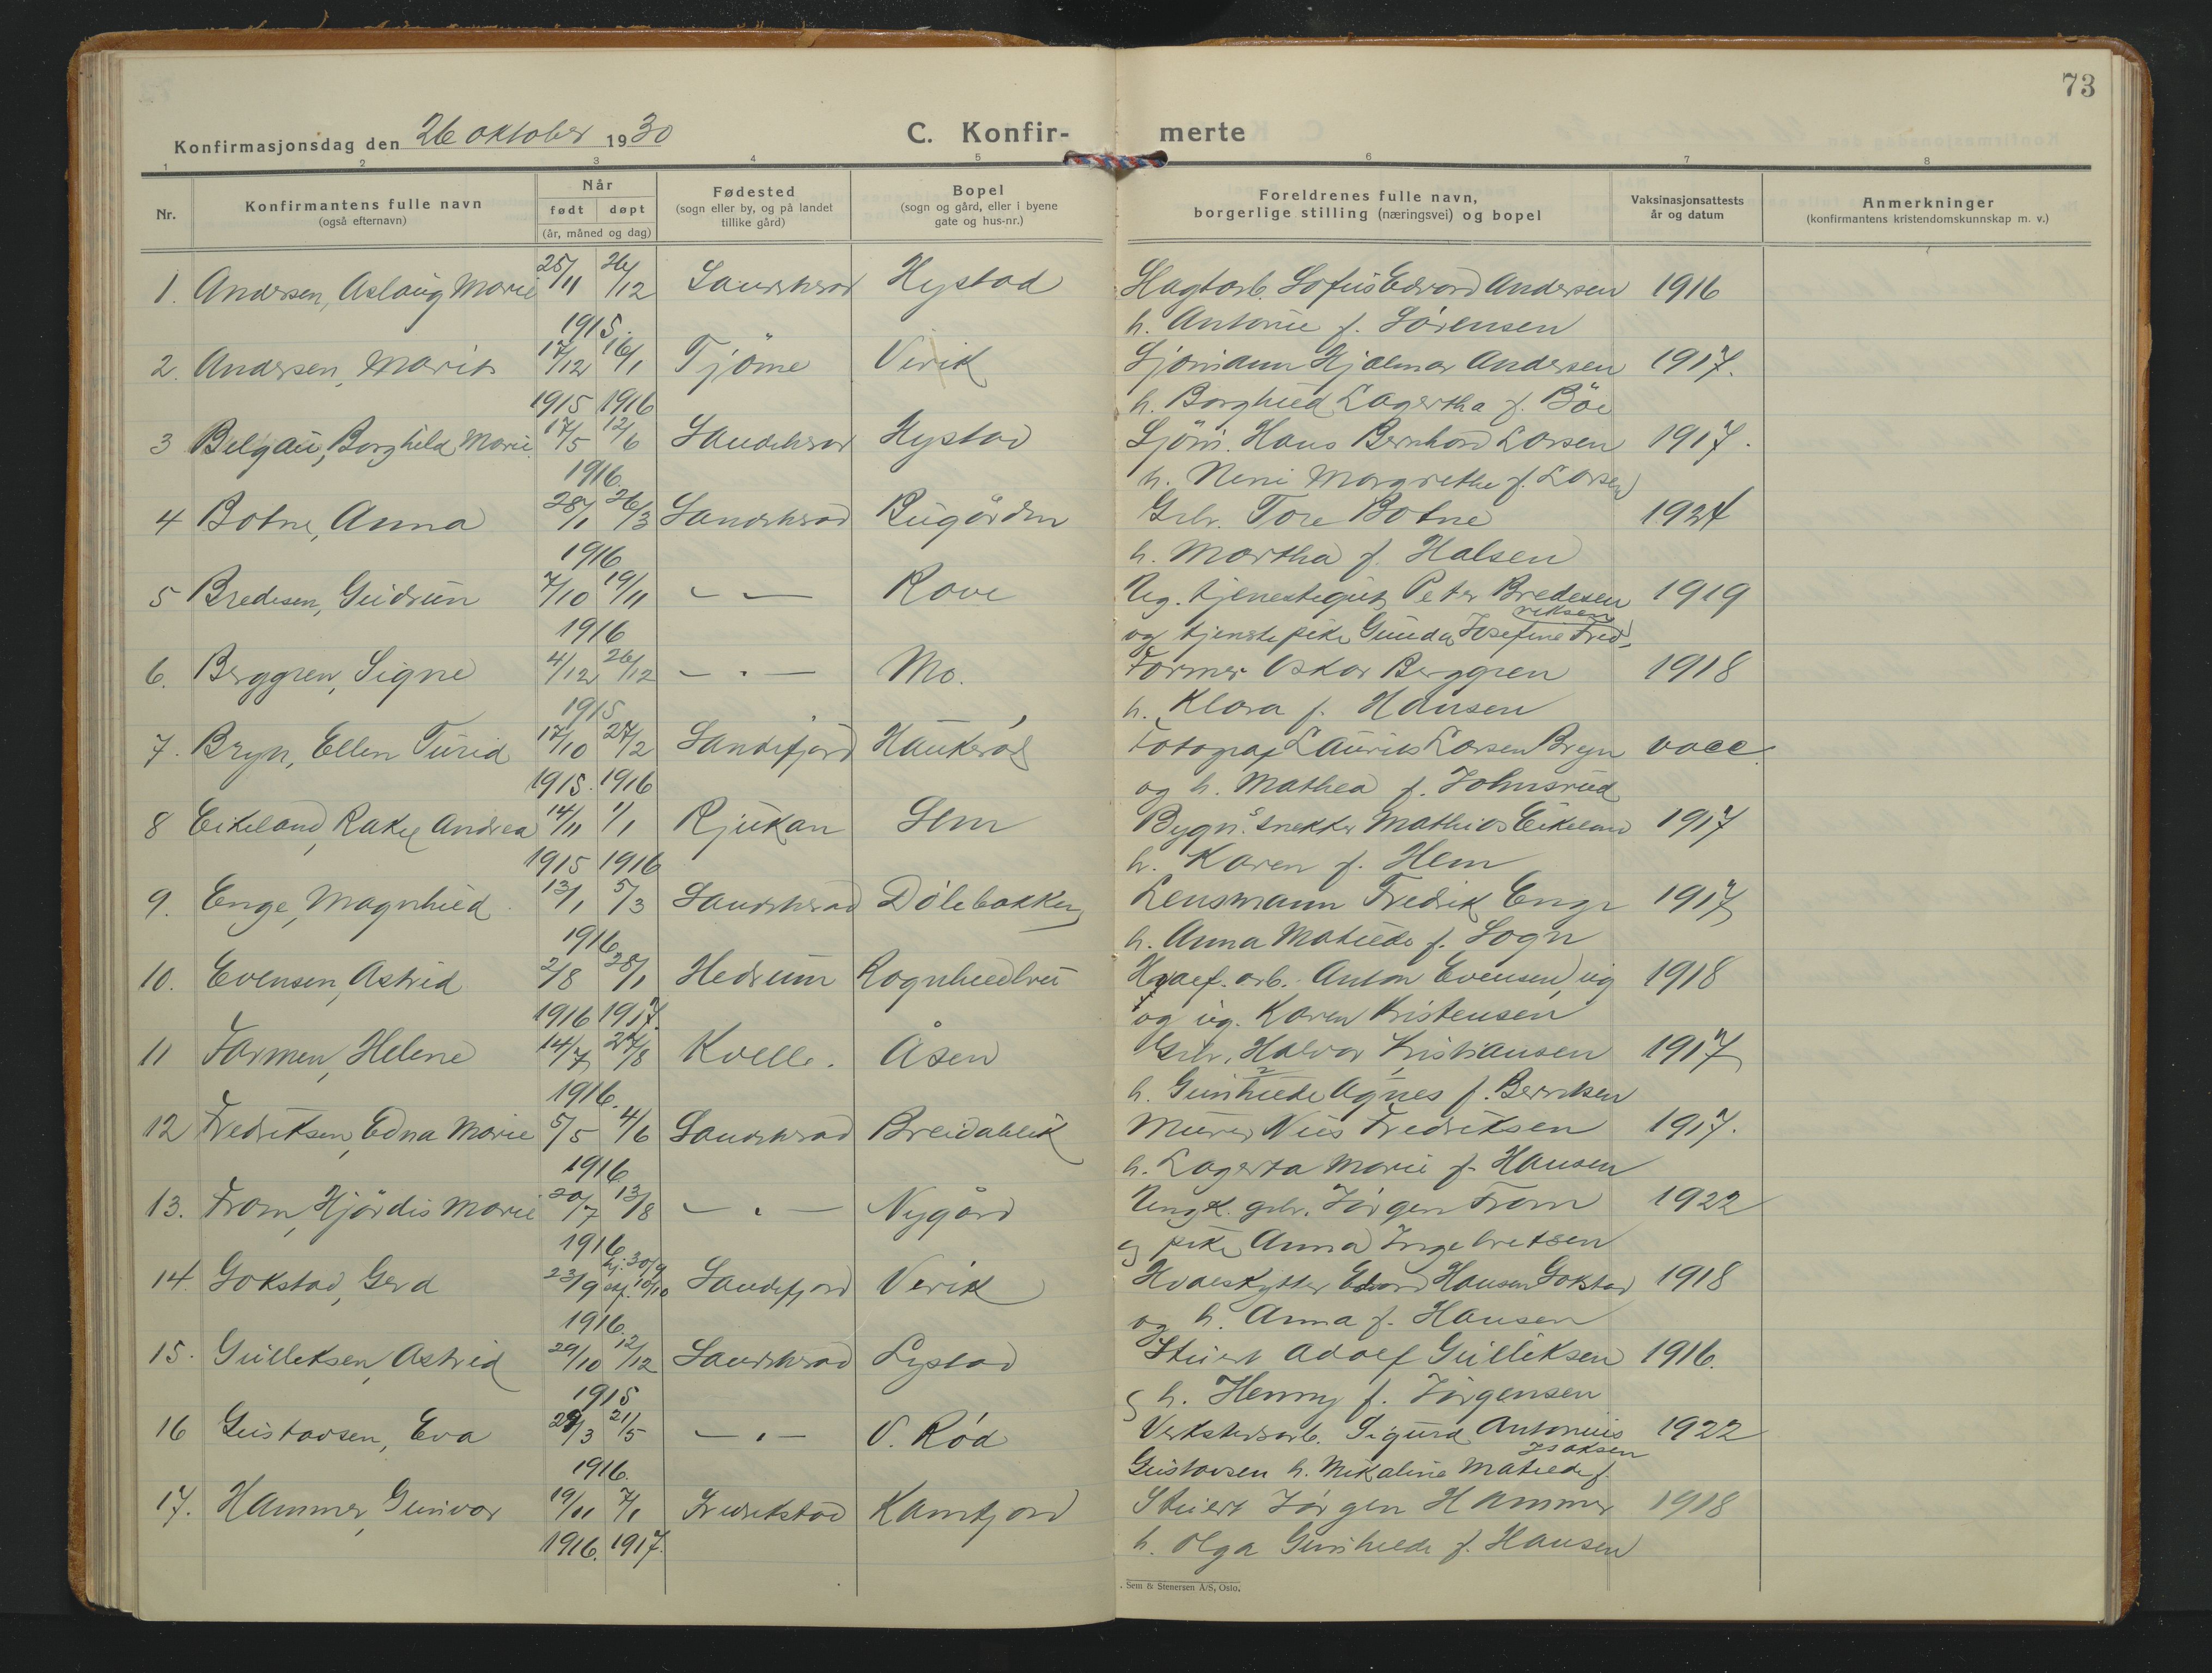 73
Konfirmasjonsdag den 26 oktober 1930
C. Konfir- merte
1 2 3 4 5 6 7 8
Nr.
Konfirmantens fulle navn
(også efternavn)
Når
født døpt
(år, måned og dag)
Fødested
(sogn eller by, og på landet
tillike gård)
Bopel
(sogn og gård, eller i byene
gate og hus-nr.)
Foreldrenes fulle navn,
borgerlige stilling (næringsvei) og bopel
Vaksinasjonsattests
år og datum
Anmerkninger
(konfirmantens kristendomskunnskap m. v.)
1. Andersen, Aslaug Marie 25/11 26/12 Sandeherad Hystad Slagtarb. Sofus Edvard Andersen 1916
1915. h. Antonie f. Sörensen
2. Andersen, Marit 17/12 16/1 Tjöme Virik Sjömann Hjalmar Andersen 1917.
1915 1916 h. Borghild Lagertha f. Böe
3 Belgau, Borghild Marie 17/5 12/6 Sandeherad Hystad Sjöm. Hans Bernhard Larsen 1917.
1916. h. Neni Margrethe f. Larsen
4 Botne, Anna 28/1 26/3 Sandeherad Bugården Grbr. Tore Botne 1924
1916 h. Martha f. Halsen
5 Bredesen, Gudrun 7/10 19/11 - - Rove Ug. tjenestegut Peter Bredesen 1919
1916 og tjenestepike Gunda Josefine Fredriksen
6. Berggren, Signe 4/12 26/12 - . - Mo. Former Oskar Berggren 1918
1915 h. Klara f. Hansen
7. Bryn, Ellen Turid 17/10 27/2 Sandefjord Haukerød Fotograf Laurits Larsen Bryn vacc.
1915. 1916 og h. Mathea f. Johnsrud
8 Eikeland, Rakel Andrea 14/11 1/1 Rjukan Sem Bygn.snekker Mathias Eikeland 1917
1915 1916 h. Karen f. Hem
9. Enge, Magnhild 13/1 5/3 Sandeherad Dölebakken Lensmann Fredrik Enge 1917
1916 h. Anna Matilde f. Sogn
10. Evensen, Astrid 2/8 28/1 Hedrum Rognhildbru Hvalf. arb. Anton Evensen, ug 1918
1916 1917. og ug. Karen Kristensen
11 Farmen, Helene 14/7 27/8 Kvelle. Åsen Grbr. Halvor Kristiansen 1917
1916. h. Gunhilde Agnes f. Berntsen
12 Fredriksen, Edna Marie 5/5 4/6 Sandeherad Breidablik Murer Nils Fredriksen 1917.
1916 h. Lagerta Marie f. Hansen
13. From, Hjördis Marie 20/7 13/8 - . - Nygård Ungk. grbr. Jörgen From 1922
1916 og pike Anna Ingebretsen
14. Gokstad, Gerd 23/9 hj. 30/9 stf. 10/10 Sandefjord Virik Hvalskytter Edvard Hansen Gokstad 1918
1916. og h. Anna f. Hansen
15. Gulleksen, Astrid 29/10 12/12 Sandeherad Lystad Stuert Adolf Gulliksen 1916.
1915 og h. Henny f. Jörgensen
16 Gustavsen, Eva 29/3 21/5 - . - V. Rød Verkstedsarb. Sigurd Antonius 1922
1916. Gustavsen h. Mikaline Matilde f. Isaksen
17. Hammer, Gunvor 19/11 7/1 Fredrikstad Kamfjord Stuert Jörgen Hammer 1918
1916. 1917. h. Olga Gunhilde f. Hansen
. Sem & Stenersen A/S, Oslo.